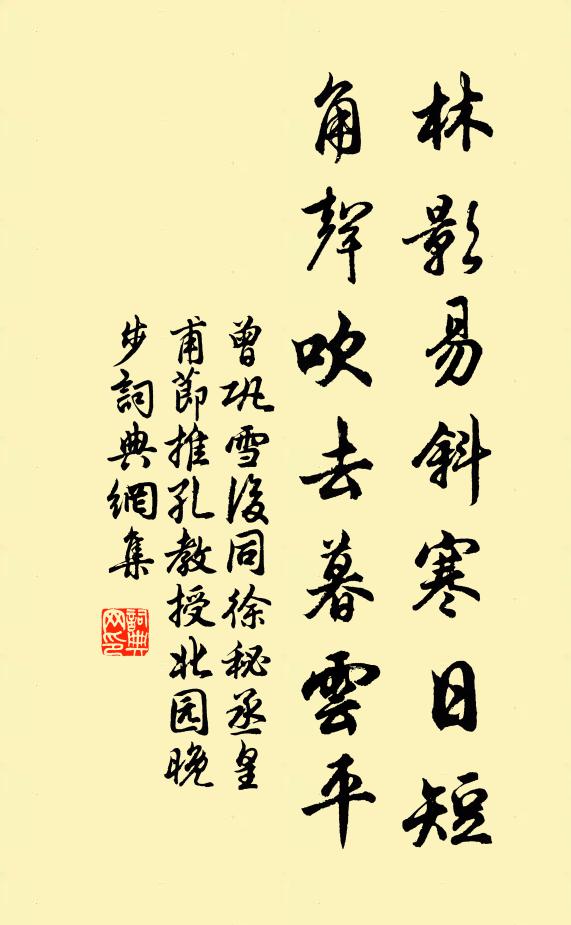 林影易斜寒日短
角聲吹去暮雲平
曾巩雪後同徐秘丞皇
甫節推孔教授北园晚
步詞典網集
詞典网印